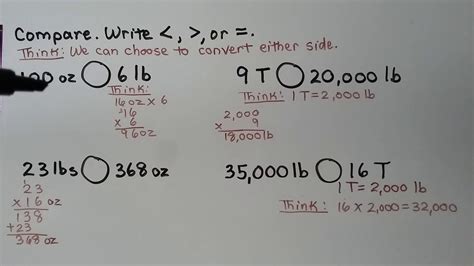 Compare. Write <, >, or =.
Think: We can choose to convert either side.
100 oz ◯ 6 lb
Think:
16 oz x 6
16
x 6
96 oz
9 T ◯ 20,000 lb
Think: 1 T = 2,000 lb
2,000
x 9
18,000 lb
23 lbs ◯ 368 oz
1
23
x 16 oz
138
+23
368 oz
35,000 lb ◯ 16 T
1 T = 2,000 lb
Think: 16 x 2,000 = 32,000